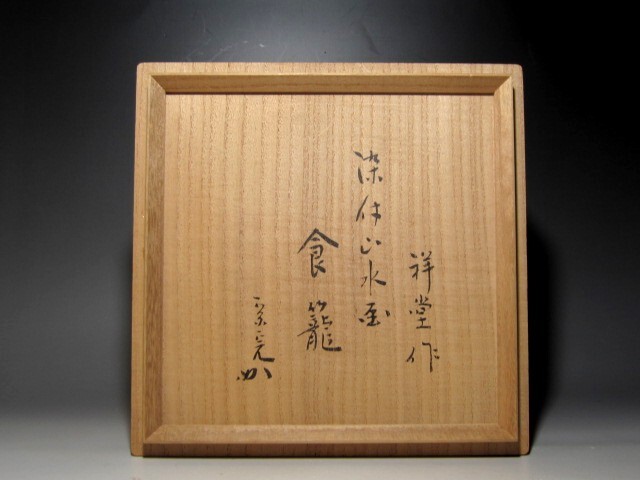 祥堂作
染付山水画
食籠